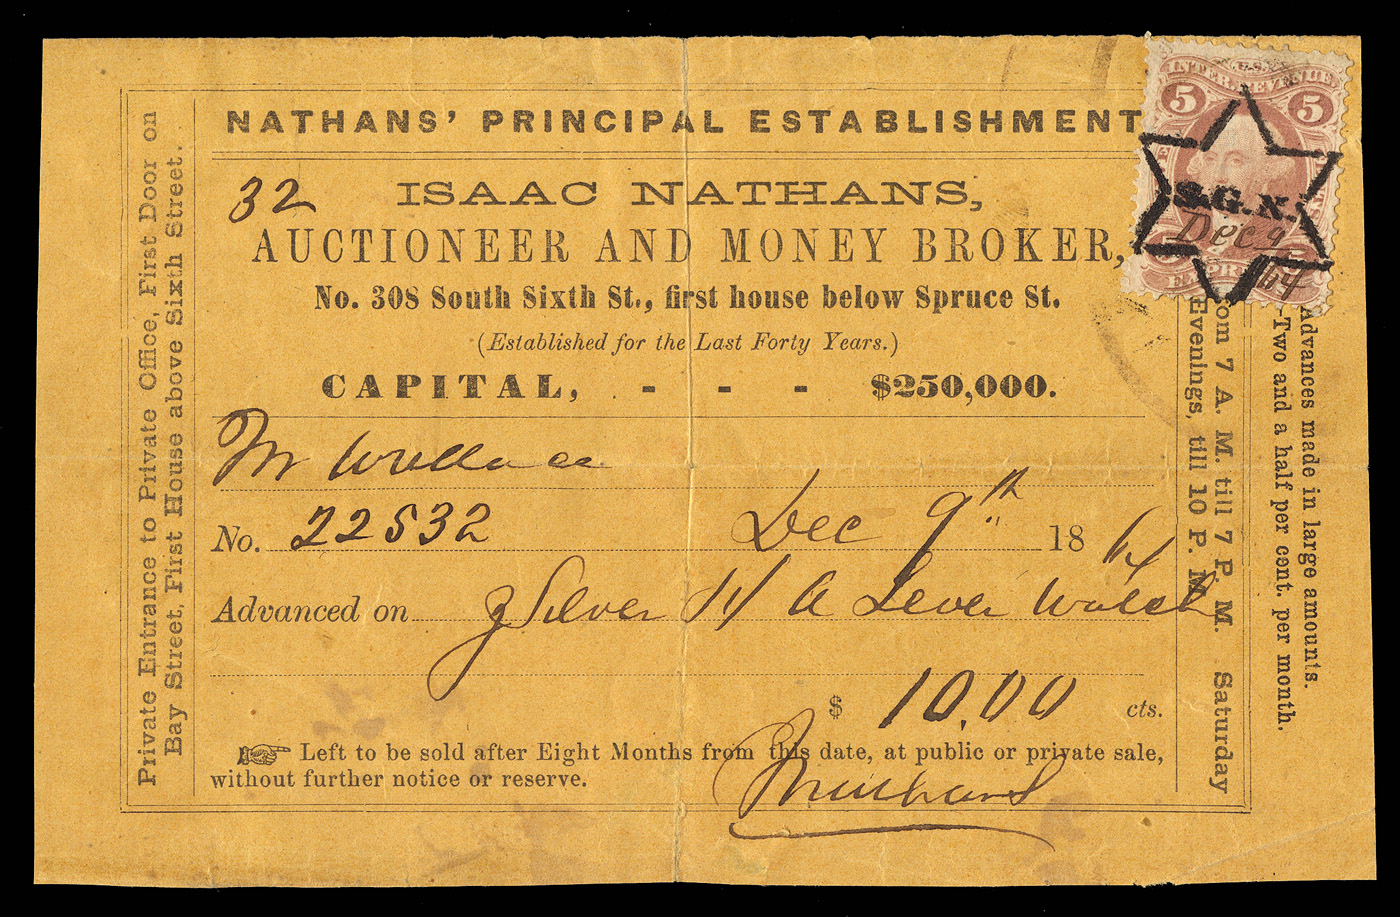 NATHANS' PRINCIPAL ESTABLISHMENT
32
ISAAC NATHANS,
AUCTIONEER AND MONEY BROKER,
No. 308 South Sixth St., first house below Spruce St.
(Established for the Last Forty Years.)
CAPITAL, - - - $250,000.
Mr Wallace
No. 22532 Dec 9th 1864
Advanced on Silver H A Lever Watch
$ 10.00 cts.
Left to be sold after Eight Months from this date, at public or private sale,
without further notice or reserve.
Private Entrance to Private Office, First Door on
Bay Street, First House above Sixth Street.
om 7 A. M. till 7 P M. Saturday
Evenings, till 10 P. M.
Advances made in large amounts.
-Two and a half per cent. per month.
U.S.
INTER. REVENUE
5 5
S.G.N.
Dec 9
64